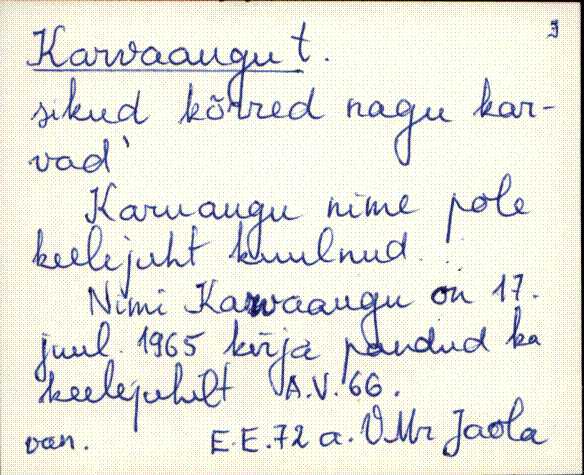 3
Karvaaugu t.
sikud kõrred nagu kar-
vad'
Karuaugu nime pole
keelejuht kuulnud.
Nimi Karvaaugu on 17.
juul. 1965 kirja pandud ka
keelejuhilt A.V. 66.
van. E.E. 72 a. VMr Jaola